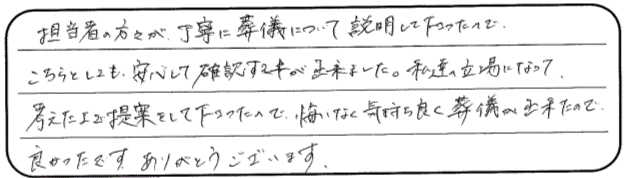 担当者の方々が、丁寧に葬儀について説明して下さったので、
こちらとしても、安心して確認する事が出来ました。私達の立場になって、
考えた上で提案をして下さったので、悔いなく気持ち良く葬儀が出来たので
良かったです。ありがとうございます。